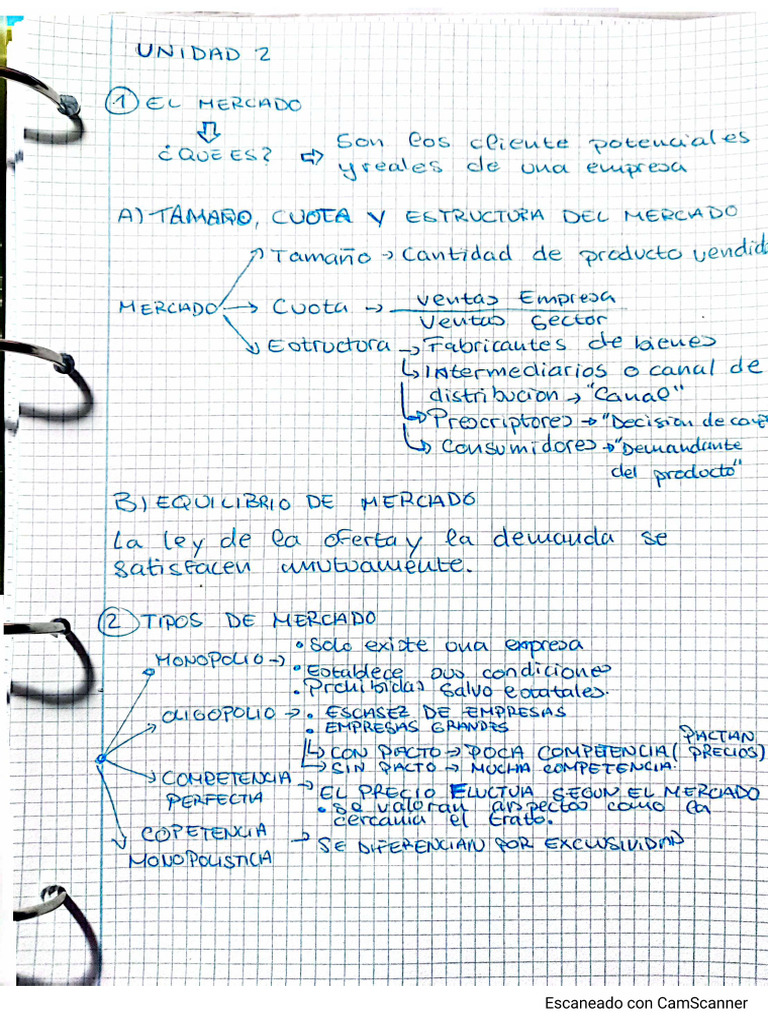 UNIDAD 2
① EL MERCADO
¿QUE ES? ⇨ Son los cliente potenciales
y reales de una empresa
A) TAMAÑO, CUOTA Y ESTRUCTURA DEL MERCADO
Tamaño → Cantidad de producto vendid
MERCADO → Cuota → ventas Empresa
Ventas Sector
Estructura → Fabricantes de bienes
Intermediarios o canal de
distribucion → "Canal"
Prescriptores → "Decision de
Consumidores → "Demandante
del producto"
B) EQUILIBRIO DE MERCADO
La ley de la oferta y la demanda se
satisfacen mutuamente.
② TIPOS DE MERCADO
MONOPOLIO → • Solo existe una empresa
• Establece sus condiciones
• Prohibidas salvo estatales.
OLIGOPOLIO → • ESCASEZ DE EMPRESAS
• EMPRESAS GRANDES
CON PACTO → POCA COMPETENCIA (PACTAN PRECIOS)
SIN PACTO → MUCHA COMPETENCIA.
COMPETENCIA PERFECTA → EL PRECIO FLUCTUA SEGUN EL MERCADO
• Se valoran aspectos como la
cercania el trato.
COPETENCIA
MONOPOLISTICA → SE DIFERENCIAN POR EXCLUSIVIDAD
Escaneado con CamScanner